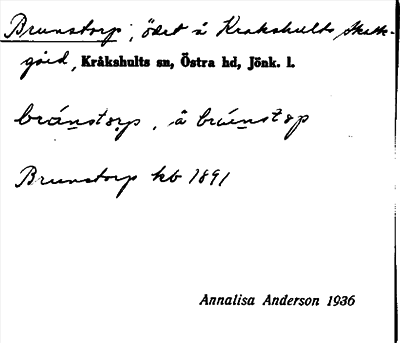 Brunstorp, ödet å Kråkshults Skatte-
gård, Kråkshults sn, Östra hd, Jönk. l.
bránstorp, å bránstop
Brunstorp kb 1891
Annalisa Anderson 1936